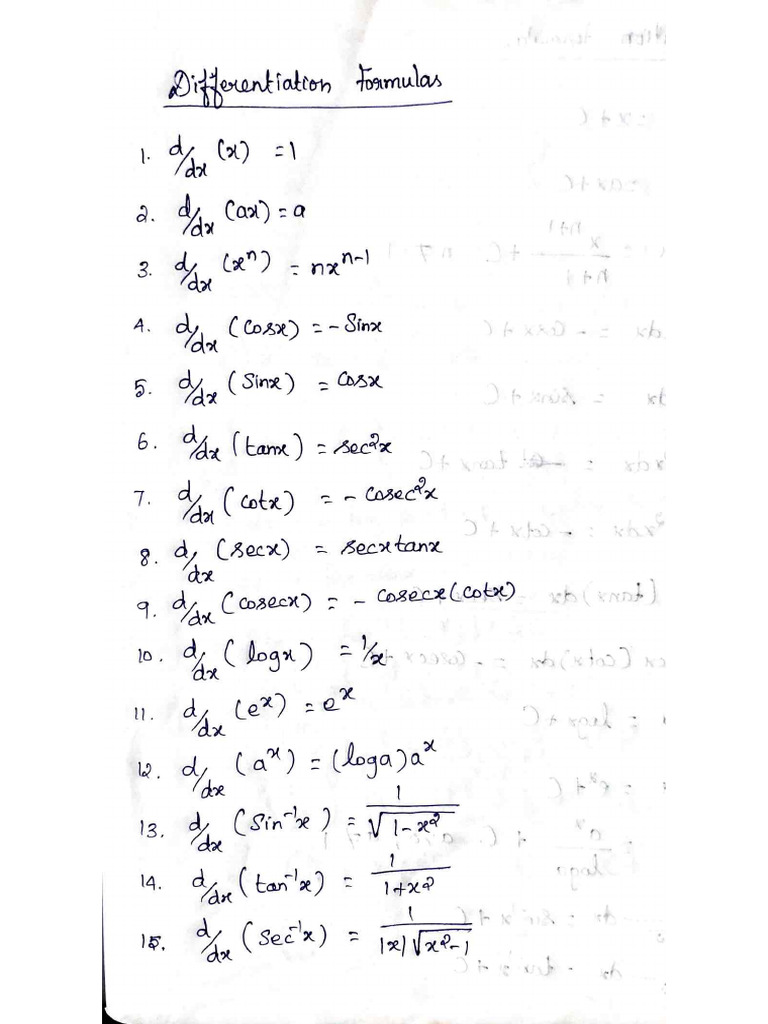 Differentiation Formulas
1. d/dx (x) = 1
2. d/dx (ax) = a
3. d/dx (xⁿ) = nxⁿ⁻¹
4. d/dx (cosx) = - Sinx
5. d/dx (Sinx) = Cosx
6. d/dx (tanx) = sec²x
7. d/dx (cotx) = - Cosec²x
8. d/dx (secx) = secxtanx
9. d/dx (cosecx) = - cosecx(cotx)
10. d/dx (logx) = 1/x
11. d/dx (eˣ) = eˣ
12. d/dx (aˣ) = (loga)aˣ
13. d/dx (Sin⁻¹x) = 1/√(1-x²)
14. d/dx (tan⁻¹x) = 1/(1+x²)
15. d/dx (Sec⁻¹x) = 1/(|x|√(x²-1))